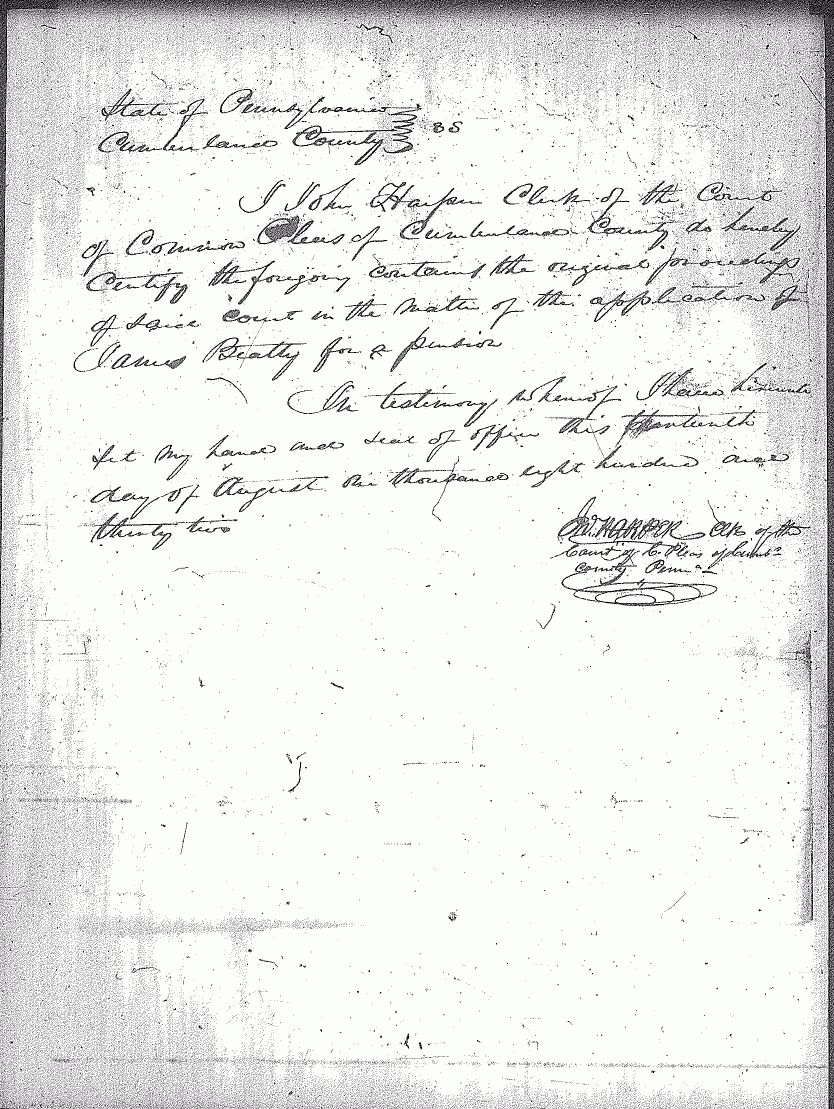 State of Pennsylvania
Cumberland County } SS
I John Harper Clerk of the Court
of Common Pleas of Cumberland County do hereby
Certify the foregoing contains the original proceedings
of said court in the matter of the application of
James Beatty for a pension
In testimony whereof I have hereunto
set my hand and seal of office this
day of August one thousand eight hundred and
thirty two
Jno. HARPER Clk of the
Court of C. Pleas of Cumbd
County Penna